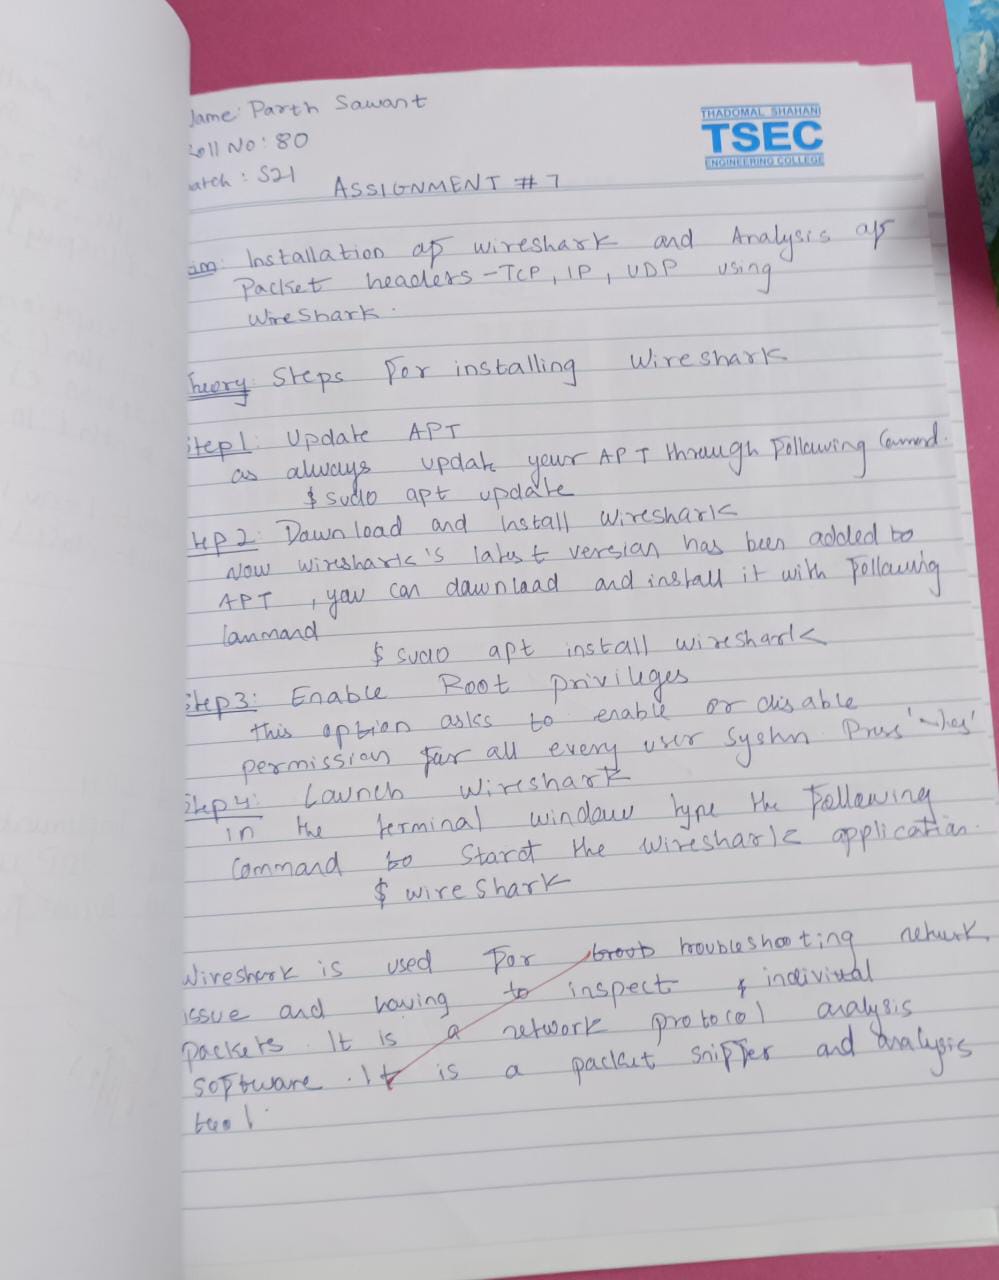 Name: Parth Sawant
Roll No: 80
Batch: S21
THADOMAL SHAHANI
TSEC
ENGINEERING COLLEGE
ASSIGNMENT # 7
Aim: Installation of wireshark and Analysis of
Packet headers - TCP, IP, UDP using
WireShark.
Theory: Steps For installing Wireshark
Step1: Update APT
as always update your APT through Following Command.
$ sudo apt update
Step 2: Download and Install Wireshark
Now wireshark's latest version has been added to
APT, you can download and install it with Following
Command
$ sudo apt install wireshark
Step3: Enable Root privileges
this option asks to enable or disable
permission for all every user system Press 'Yes'
Step4: Launch Wireshark
in the terminal window type the Following
Command to Starct the Wireshark application.
$ wireShark
Wireshark is used For troub troubleshooting network
issue and having to inspect & indiviual
packets. It is a network protocol analysis
software. It is a packet sniffer and analysis
tool.